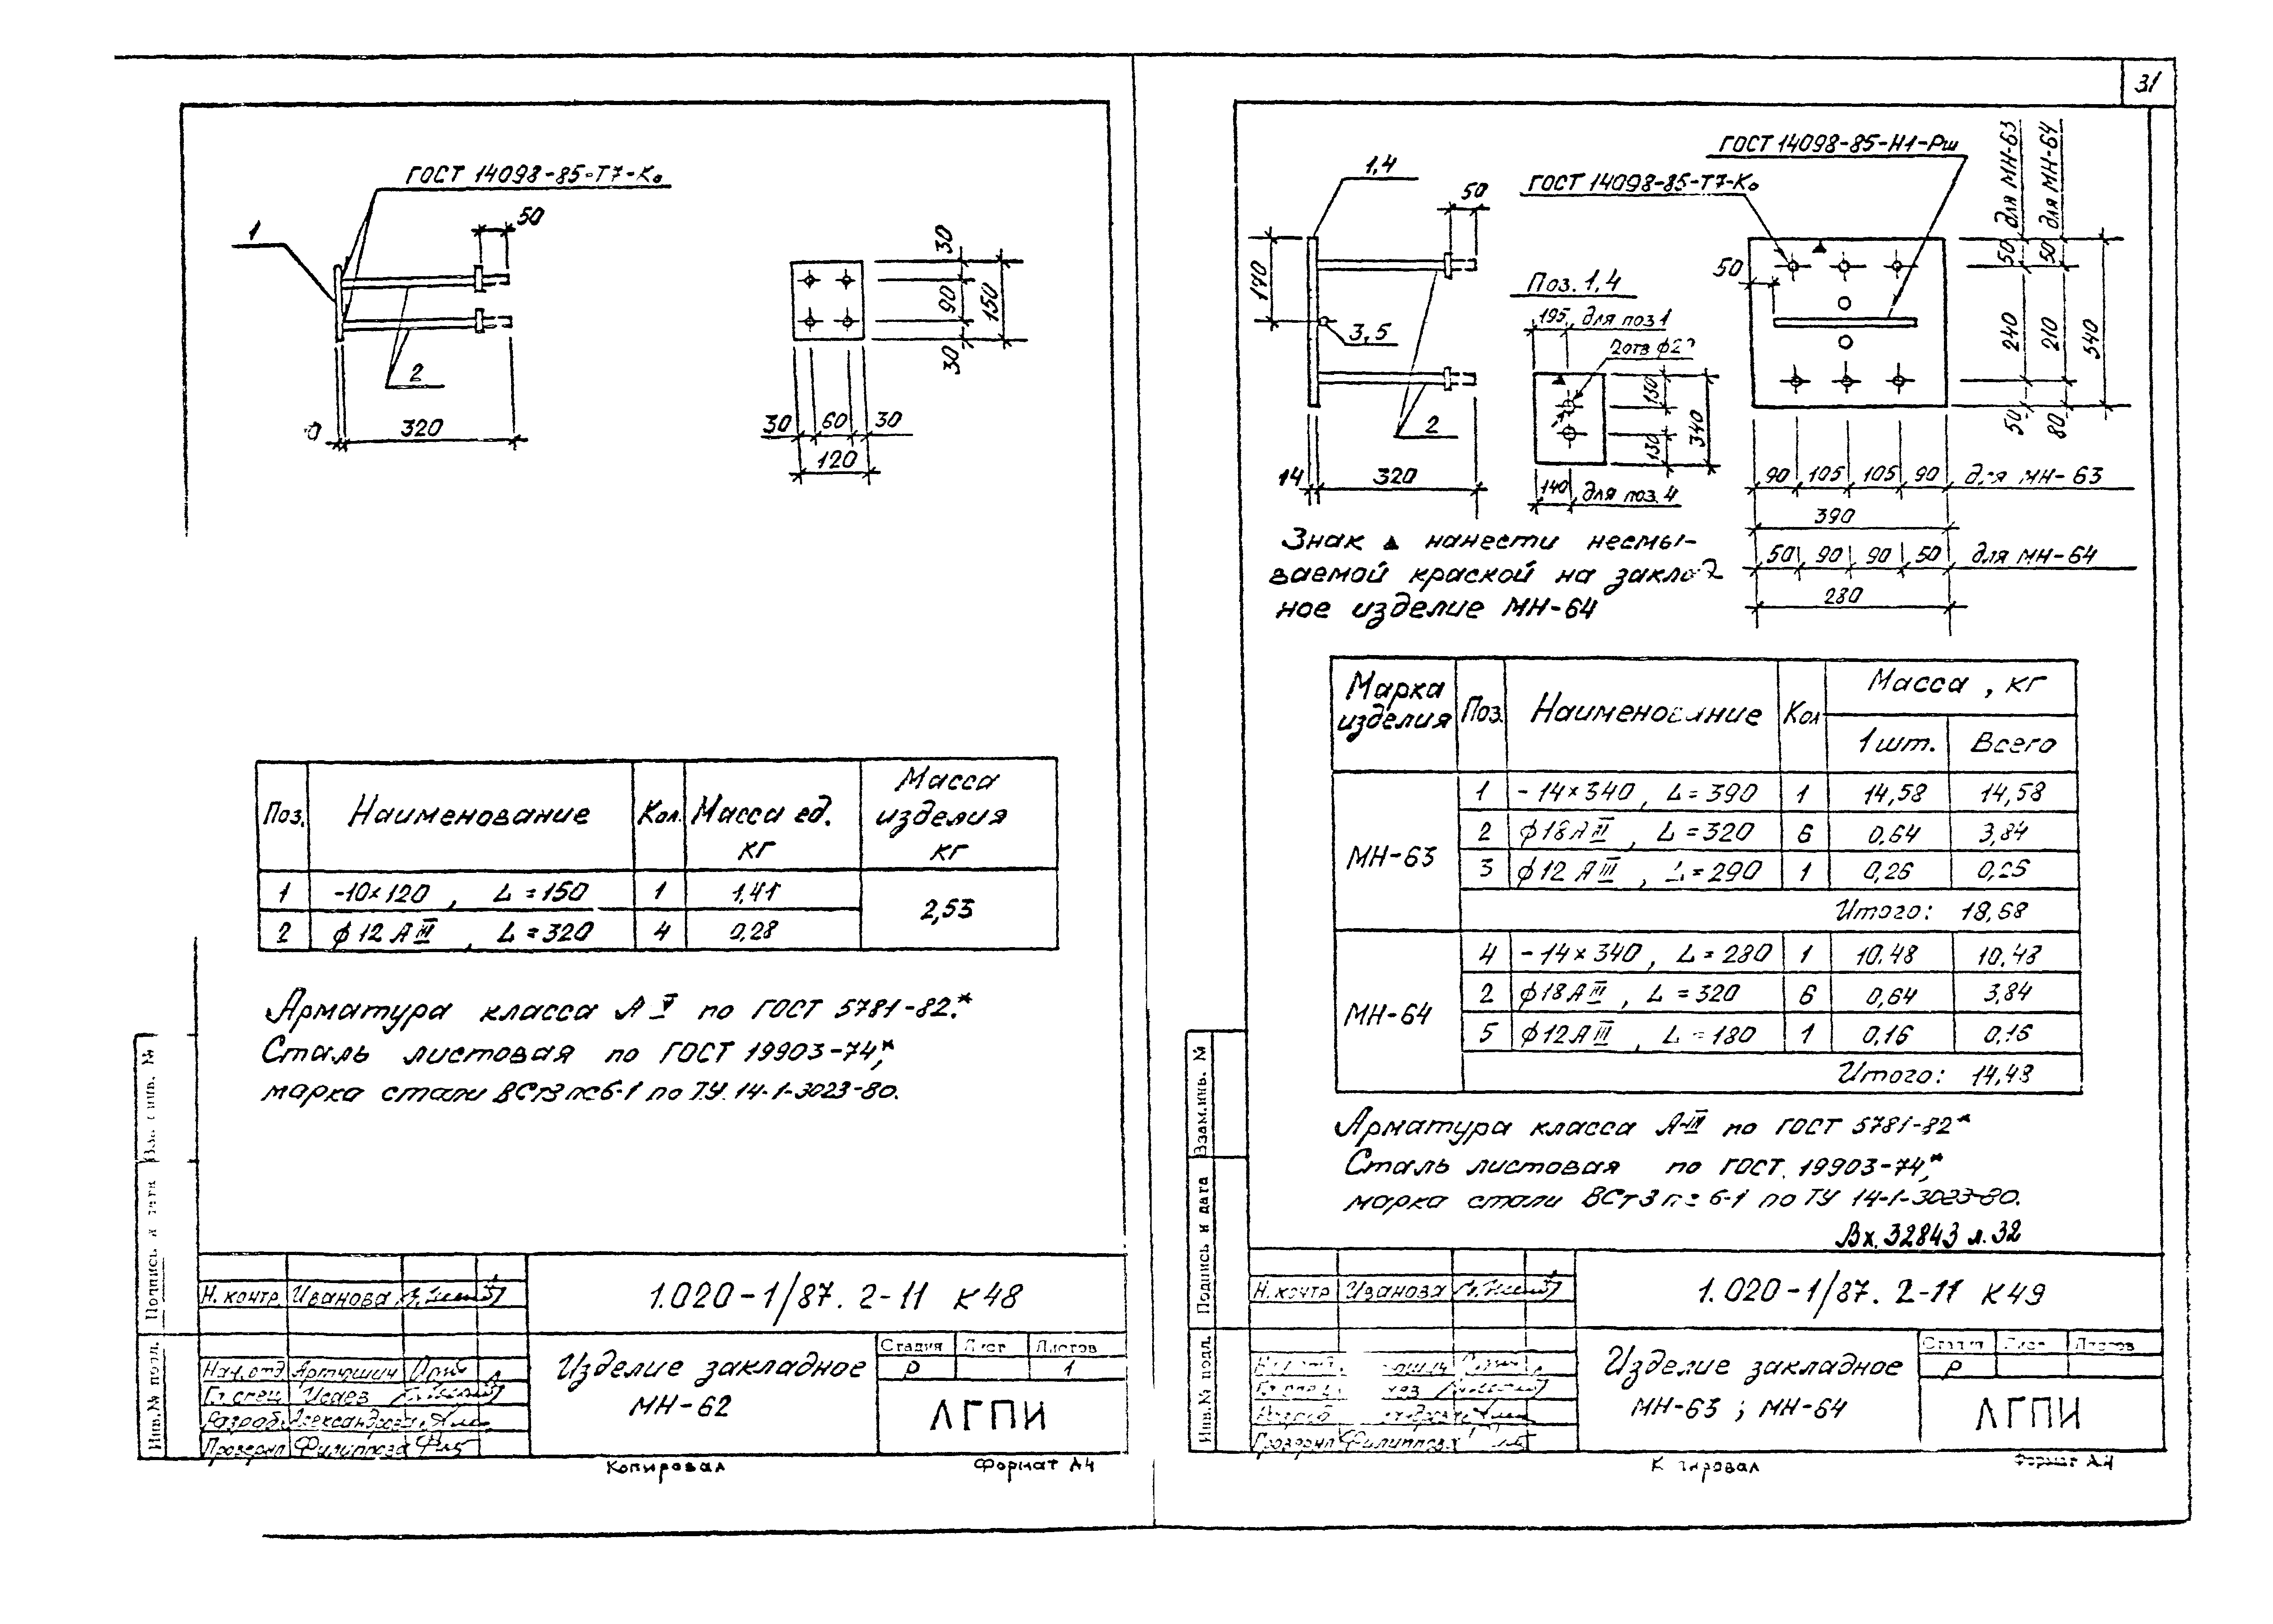 31
ГОСТ 14098-85-Т7-Ко
1
50
2
320
30
90
150
30
30 60 30
120
Поз. Наименование Кол. Масса ед. кг Масса изделия кг
1 -10×120, L=150 1 1,41 2,53
2 ϕ12 АIII, L=320 4 0,28
Арматура класса А V по ГОСТ 5781-82.*
Сталь листовая по ГОСТ 19903-74,*
марка стали ВСт3пс6-1 по ТУ 14-1-3023-80.
Инв.№ подл. Подпись и дата Взам.инв. №
Н. контр. Иванова
Нач.отд Артюшин
Гл. спец. Исаев
Разраб. Александрова
Проверил Филиппова
1.020-1/87. 2-11 К48
Изделие закладное
МН-62
Стадия Лист Листов
Р 1
ЛГПИ
Копировал Формат А4
ГОСТ 14098-85-Н1-Рш
ГОСТ 14098-85-Т7-Ко
1,4
50
170
3,5
2
14 320
Поз. 1,4
195 для поз 1
2отв
130
340
130
140 для поз. 4
50
50 для МН-63
50 для МН-64
240
210
340
50
80
90 105 105 90 для МН-63
390
50 90 90 50 для МН-64
280
Знак ▲ нанести несмы-
ваемой краской на заклад
ное изделие МН-64
Марка изделия Поз. Наименование Кол Масса, кг
1 шт. Всего
МН-63
1 -14×340, L=390 1 14,58 14,58
2 ϕ18АIII, L=320 6 0,64 3,84
3 ϕ12 АIII, L=290 1 0,26
Итого: 18,68
МН-64
4 -14×340, L=280 1 10,48 10,48
2 ϕ18АIII, L=320 6 0,64 3,84
5 ϕ12АIII, L=180 1 0,16 0,16
Итого: 14,48
Арматура класса А-III по ГОСТ 5781-82*
Сталь листовая по ГОСТ. 19903-74,*
марка стали ВСт3пс6-1 по ТУ 14-1-3023-80.
Вх. 32843 л. 32
Инв.№ подл. Подпись и дата Взам.инв. №
Н. контр Иванова
Проверил Филиппова
1.020-1/87. 2-11 К49
Изделие закладное
МН-63; МН-64
Стадия Лист Листов
Р
ЛГПИ
Формат А4